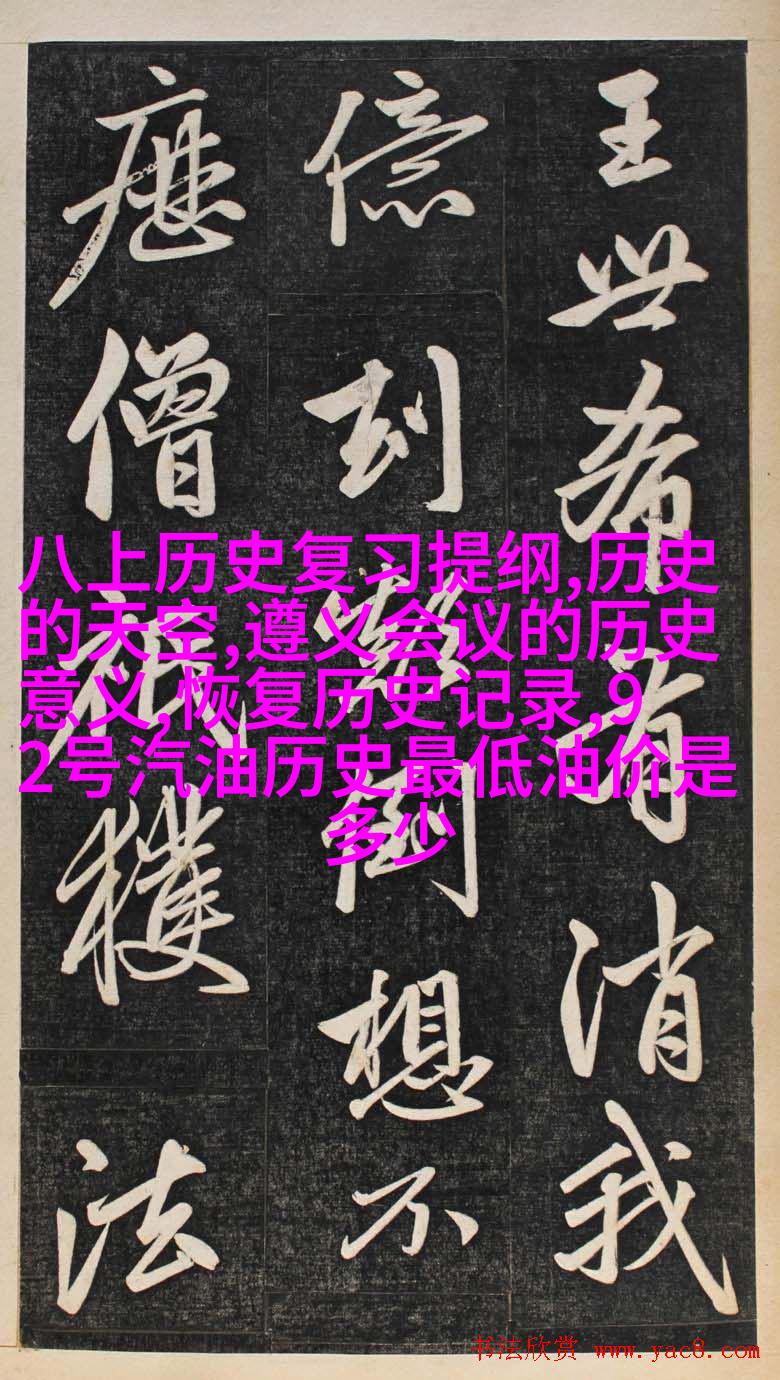 王世希有消我
億劫顛倒想不
歷僧祇獲法
八上历史复习提纲,历史
的天空,遵义会议的历史
意义,恢复历史记录,9
2号汽油历史最低油价是
多少
书法欣赏 www.yac8.com